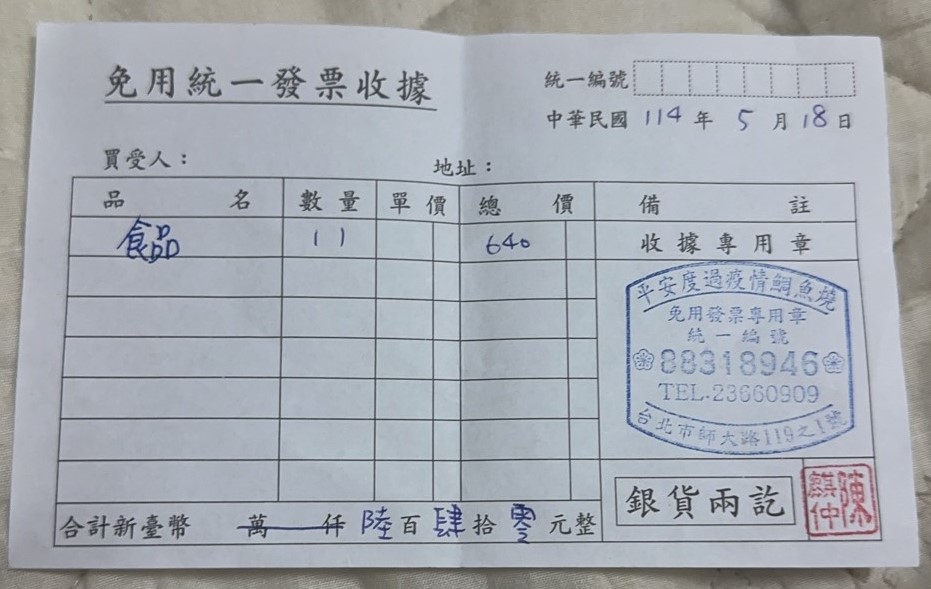 免用統一發票收據
統一編號
中華民國 114 年 5 月 18 日
買受人： 地址：
品名 數量 單價 總價 備註
食品 11 640 收據專用章
平安度過疫情鯛魚燒
免用發票專用章
統一編號
88318946
TEL.23660909
台北市師大路119之1號
合計新臺幣 萬 仟 陸 百 肆 拾 零 元整
銀貨兩訖
陳麒仲